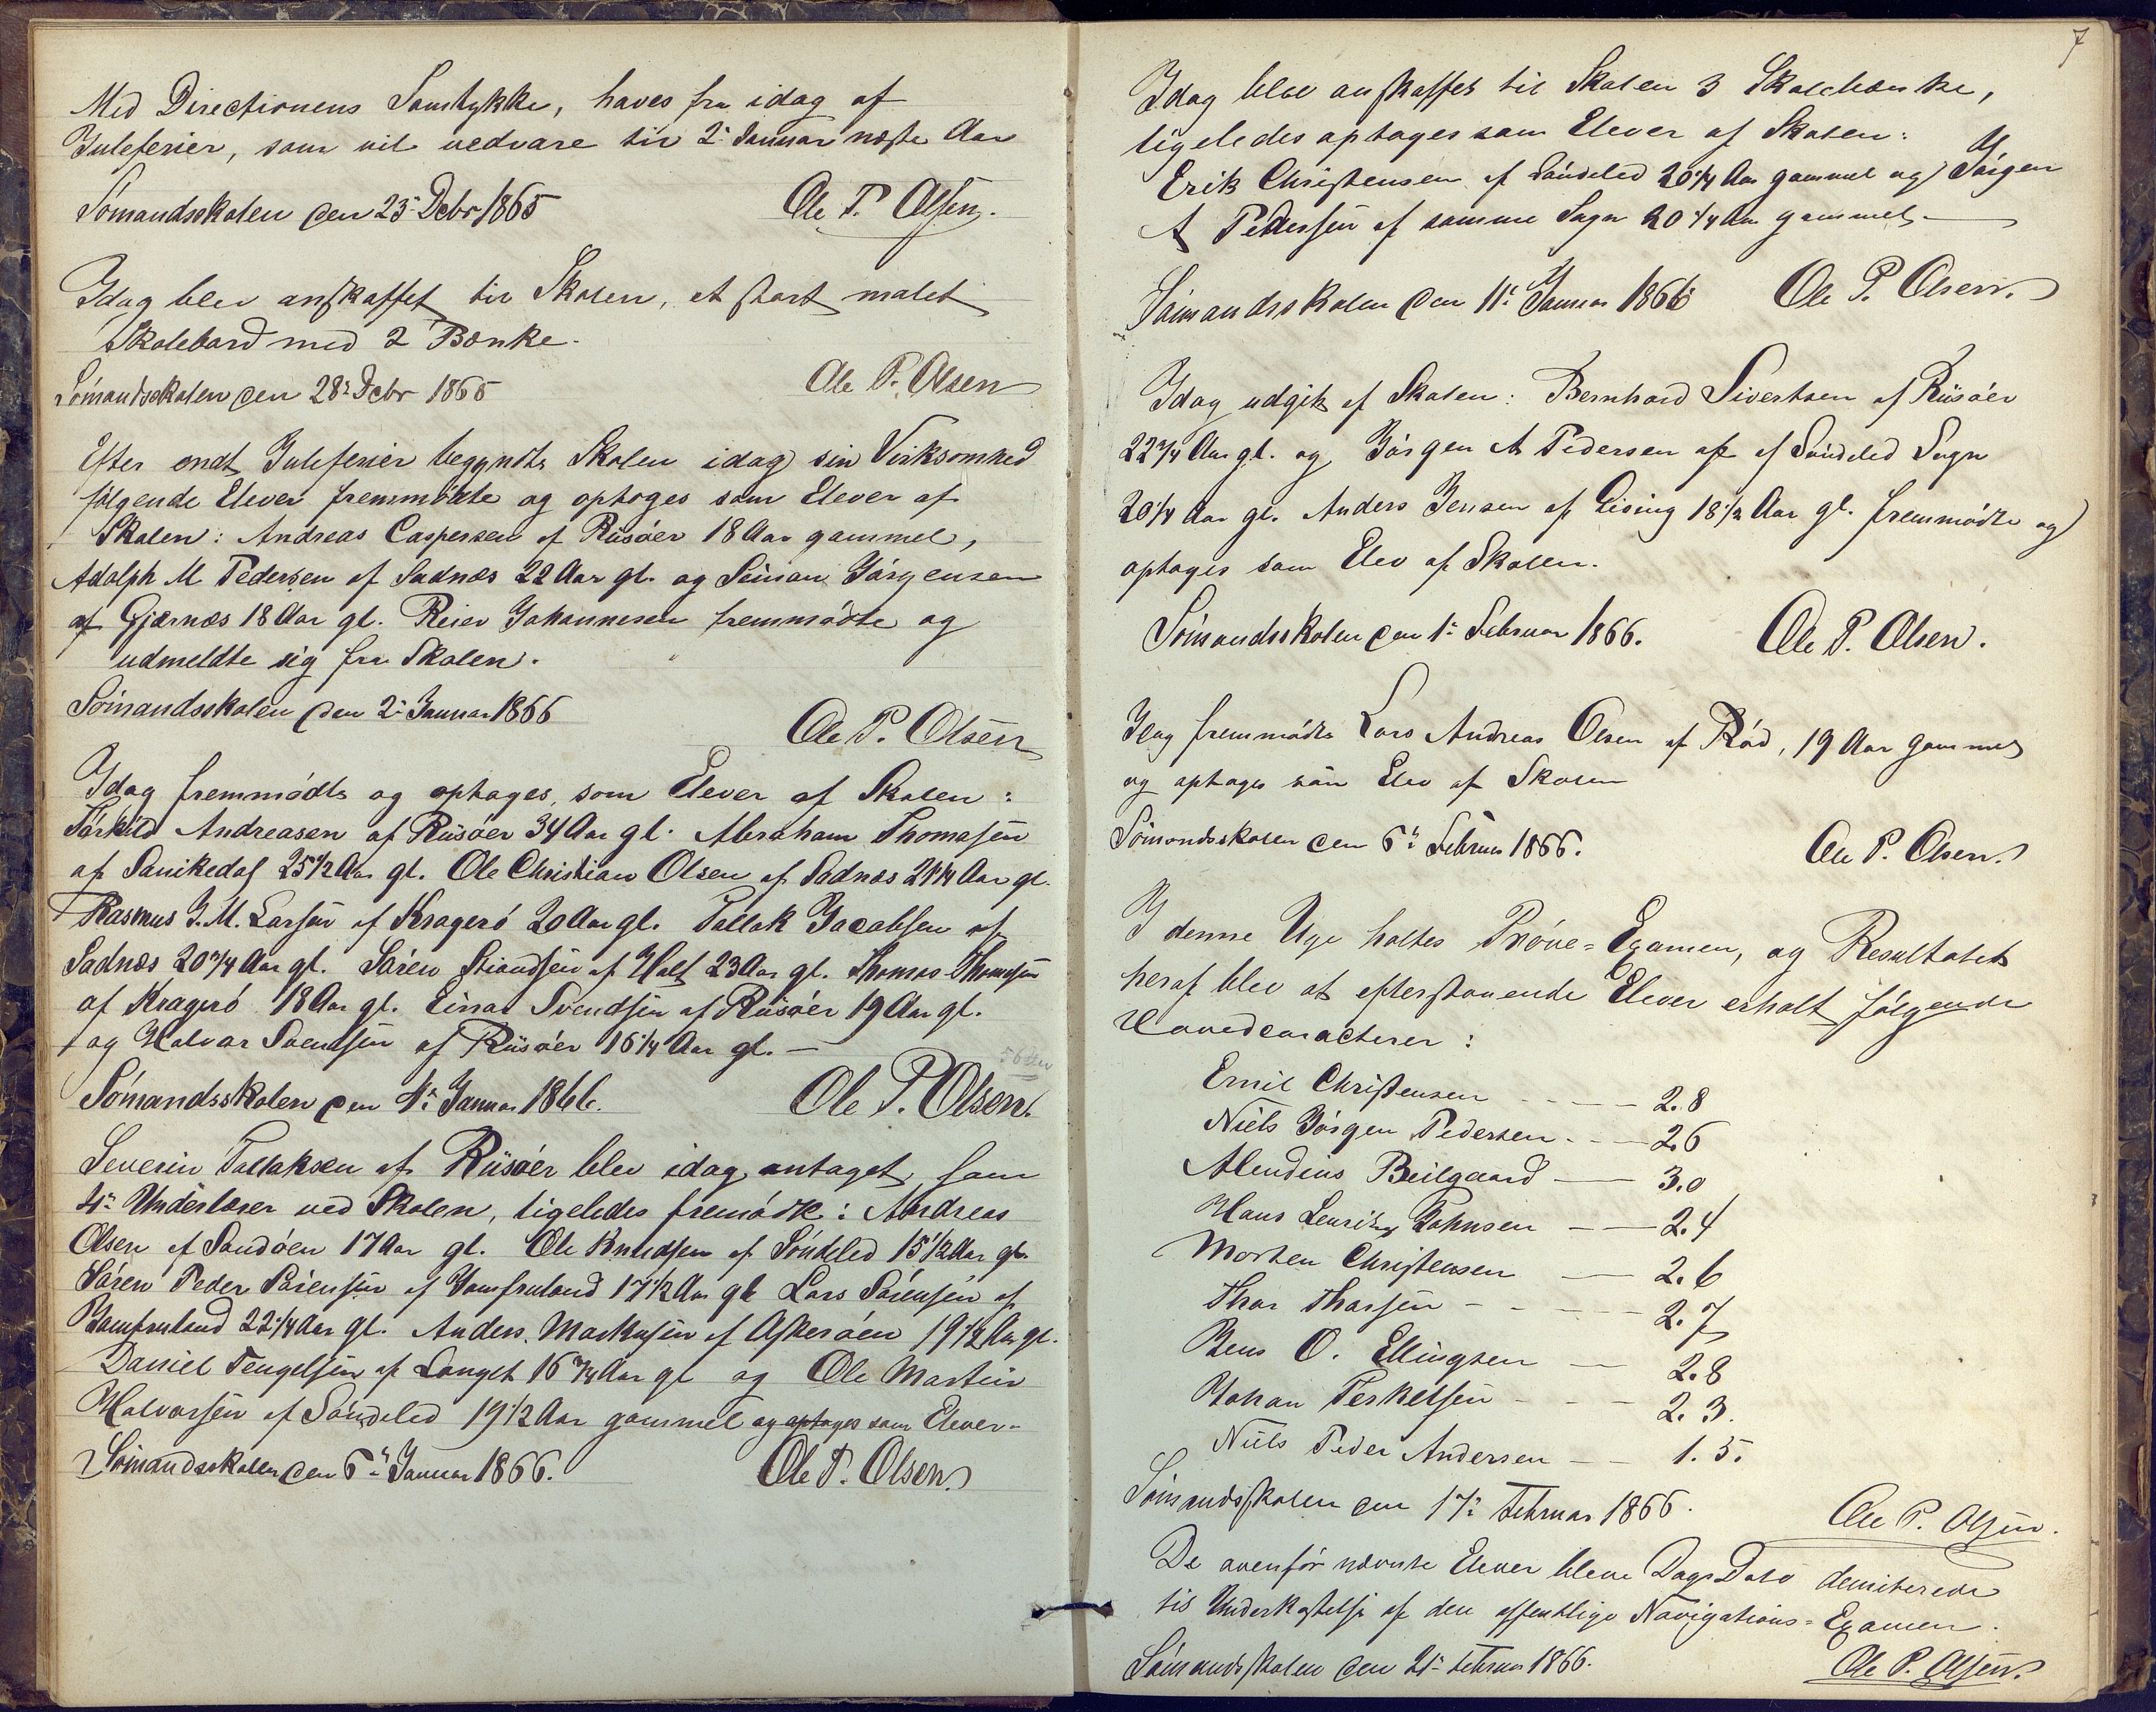 Med Directionens Samtykke, haves fra idag af
Juleferier, som vil vedvare til 2. Januar næste Aar
Sömandsskolen den 23. Debr 1865 Ole P. Olsen.
Idag blev anskaffet til Skolen, et stort malet
Skolebord med 2 Bænke.
Sömandsskolen den 28. Debr 1865 Ole P. Olsen
Efter endt Juleferier begyndte Skolen idag sin Virksomhed
følgende Elever fremmödte og optoges som Elever af
Skolen: Andreas Caspersen af Riisöer 18 Aar gammel,
Adolph M Pedersen af Sadnæs 22 Aar gl. og Seiman Jörgensen
af Gjærnæs 18 Aar gl. Reier Johannesen fremmödte og
udmeldte sig fra Skolen.
Sömandsskolen den 2. Januar 1866
Ole P. Olsen
Idag fremmödte og optoges, som Elever af Skolen:
Törkild Andreasen af Riisöer 34 Aar gl. Abraham Thomesen
af Sanikedal 25 1/2 Aar gl. Ole Christian Olsen af Sadnæs 21 1/4 Aar gl.
Rasmus J. M. Larsen af Kragerö 20 Aar gl. Tallak Jacobsen af
Sadnæs 20 3/4 Aar gl. Sören Stiandsen af Holt 23 Aar gl. Thomas Thomesen
af Kragerö 18 Aar gl. Einar Svendsen af Riisöer 19 Aar gl.
og Halvor Svendsen af Riisöer 16 1/4 Aar gl. —
Sömandsskolen den 4. Januar 1866. Ole P. Olsen.
Severin Tallaksen af Riisöer blev idag antaget som
4. Underlærer ved Skolen, ligeledes fremödte: Andreas
Olsen af Sandöen 17 Aar gl. Ole Knudsen af Söndeled 15 1/2 Aar gl.
Sören Peder Sörensen af Jomfruland 17 1/2 Aar gl Lars Sörensen af
Jomfruland 22 1/4 Aar gl. Anders Markusen af Askeröen 19 1/2 Aar gl.
Daniel Tengelsen af Langet 16 3/4 Aar gl og Ole Martin
Halvorsen af Söndeled 19 1/2 Aar gammel og optoges som Elever.
Sömandsskolen den 6. Januar 1866. Ole P. Olsen.
7
Idag blev anskaffet til Skolen 3 Skolebænke,
ligeledes optoges som Elever af Skolen:
Erik Christensen af Söndeled 20 1/4 Aar gammel og Jörgen
A Pedersen af samme Sogn 20 1/4 Aar gammel. —
Sömandsskolen den 11. Januar 1866 Ole P. Olsen.
Idag udgik af Skolen: Bernhard Sivertsen af Riisöer
22 3/4 Aar gl. og Jörgen A Pedersen af af Söndeled Sogn
20 1/4 Aar gl. Anders Jensen af Gising 18 1/2 Aar gl. fremmödte og
optoges som Elev af Skolen.
Sömandsskolen den 1. Februar 1866. Ole P. Olsen.
Idag fremmödte Lars Andreas Olsen af Röd, 19 Aar gammel
og optoges som Elev af Skolen
Sömandsskolen den 6. Februar 1866. Ole P. Olsen.
I denne Uge holtes Pröve=Examen, og Resultatet
heraf blev at efterstaaende Elever erholt følgende
Hovedcaracterer:
Emil Christensen — 2.8
Niels Jörgen Pedersen — 2.6
Beilgaard — 3.0
Hans Johnsen — 2.4
Morten Christensen — 2.6
Thor Thorsen — 2.7
Jens O. Ellingsen — 2.8
Johan Terkelsen — 2.3.
Niels Peder Andersen — 1.5.
Sömandsskolen den 17. Februar 1866. Ole P. Olsen.
De ovenför nævnte Elever bleve Dags Dato demiterede
til Underkastelse af den offentlige Navigations=Examen.
Sömandsskolen den 21. Februar 1866. Ole P. Olsen.